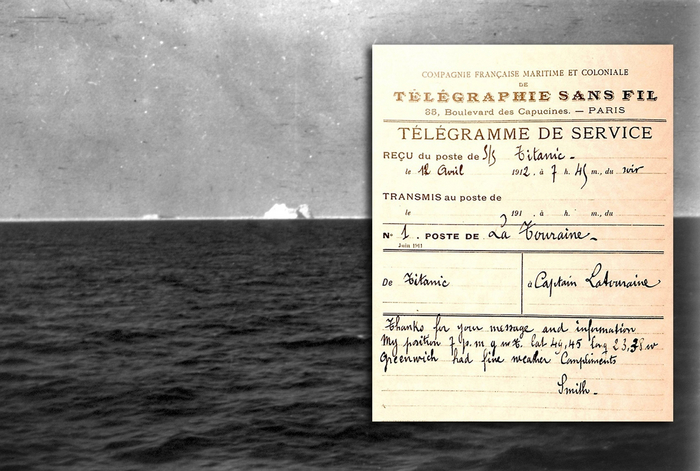 COMPAGNIE FRANÇAISE MARITIME ET COLONIALE
DE
TÉLÉGRAPHIE SANS FIL
35, Boulevard des Capucines. — PARIS
TÉLÉGRAMME DE SERVICE
REÇU du poste de S/S Titanic -
le 12 Avril 1912. à 7 h. 45 m., du soir
TRANSMIS au poste de
le 191 . à h. m., du
N° 1 . POSTE DE La Touraine -
Juin 1911
De Titanic
à Captain Latouraine
Thanks for your message and information
My position 7 p.m g.m.t. lat 49,45 long 23,38 w
Greenwich had fine weather Compliments
Smith -